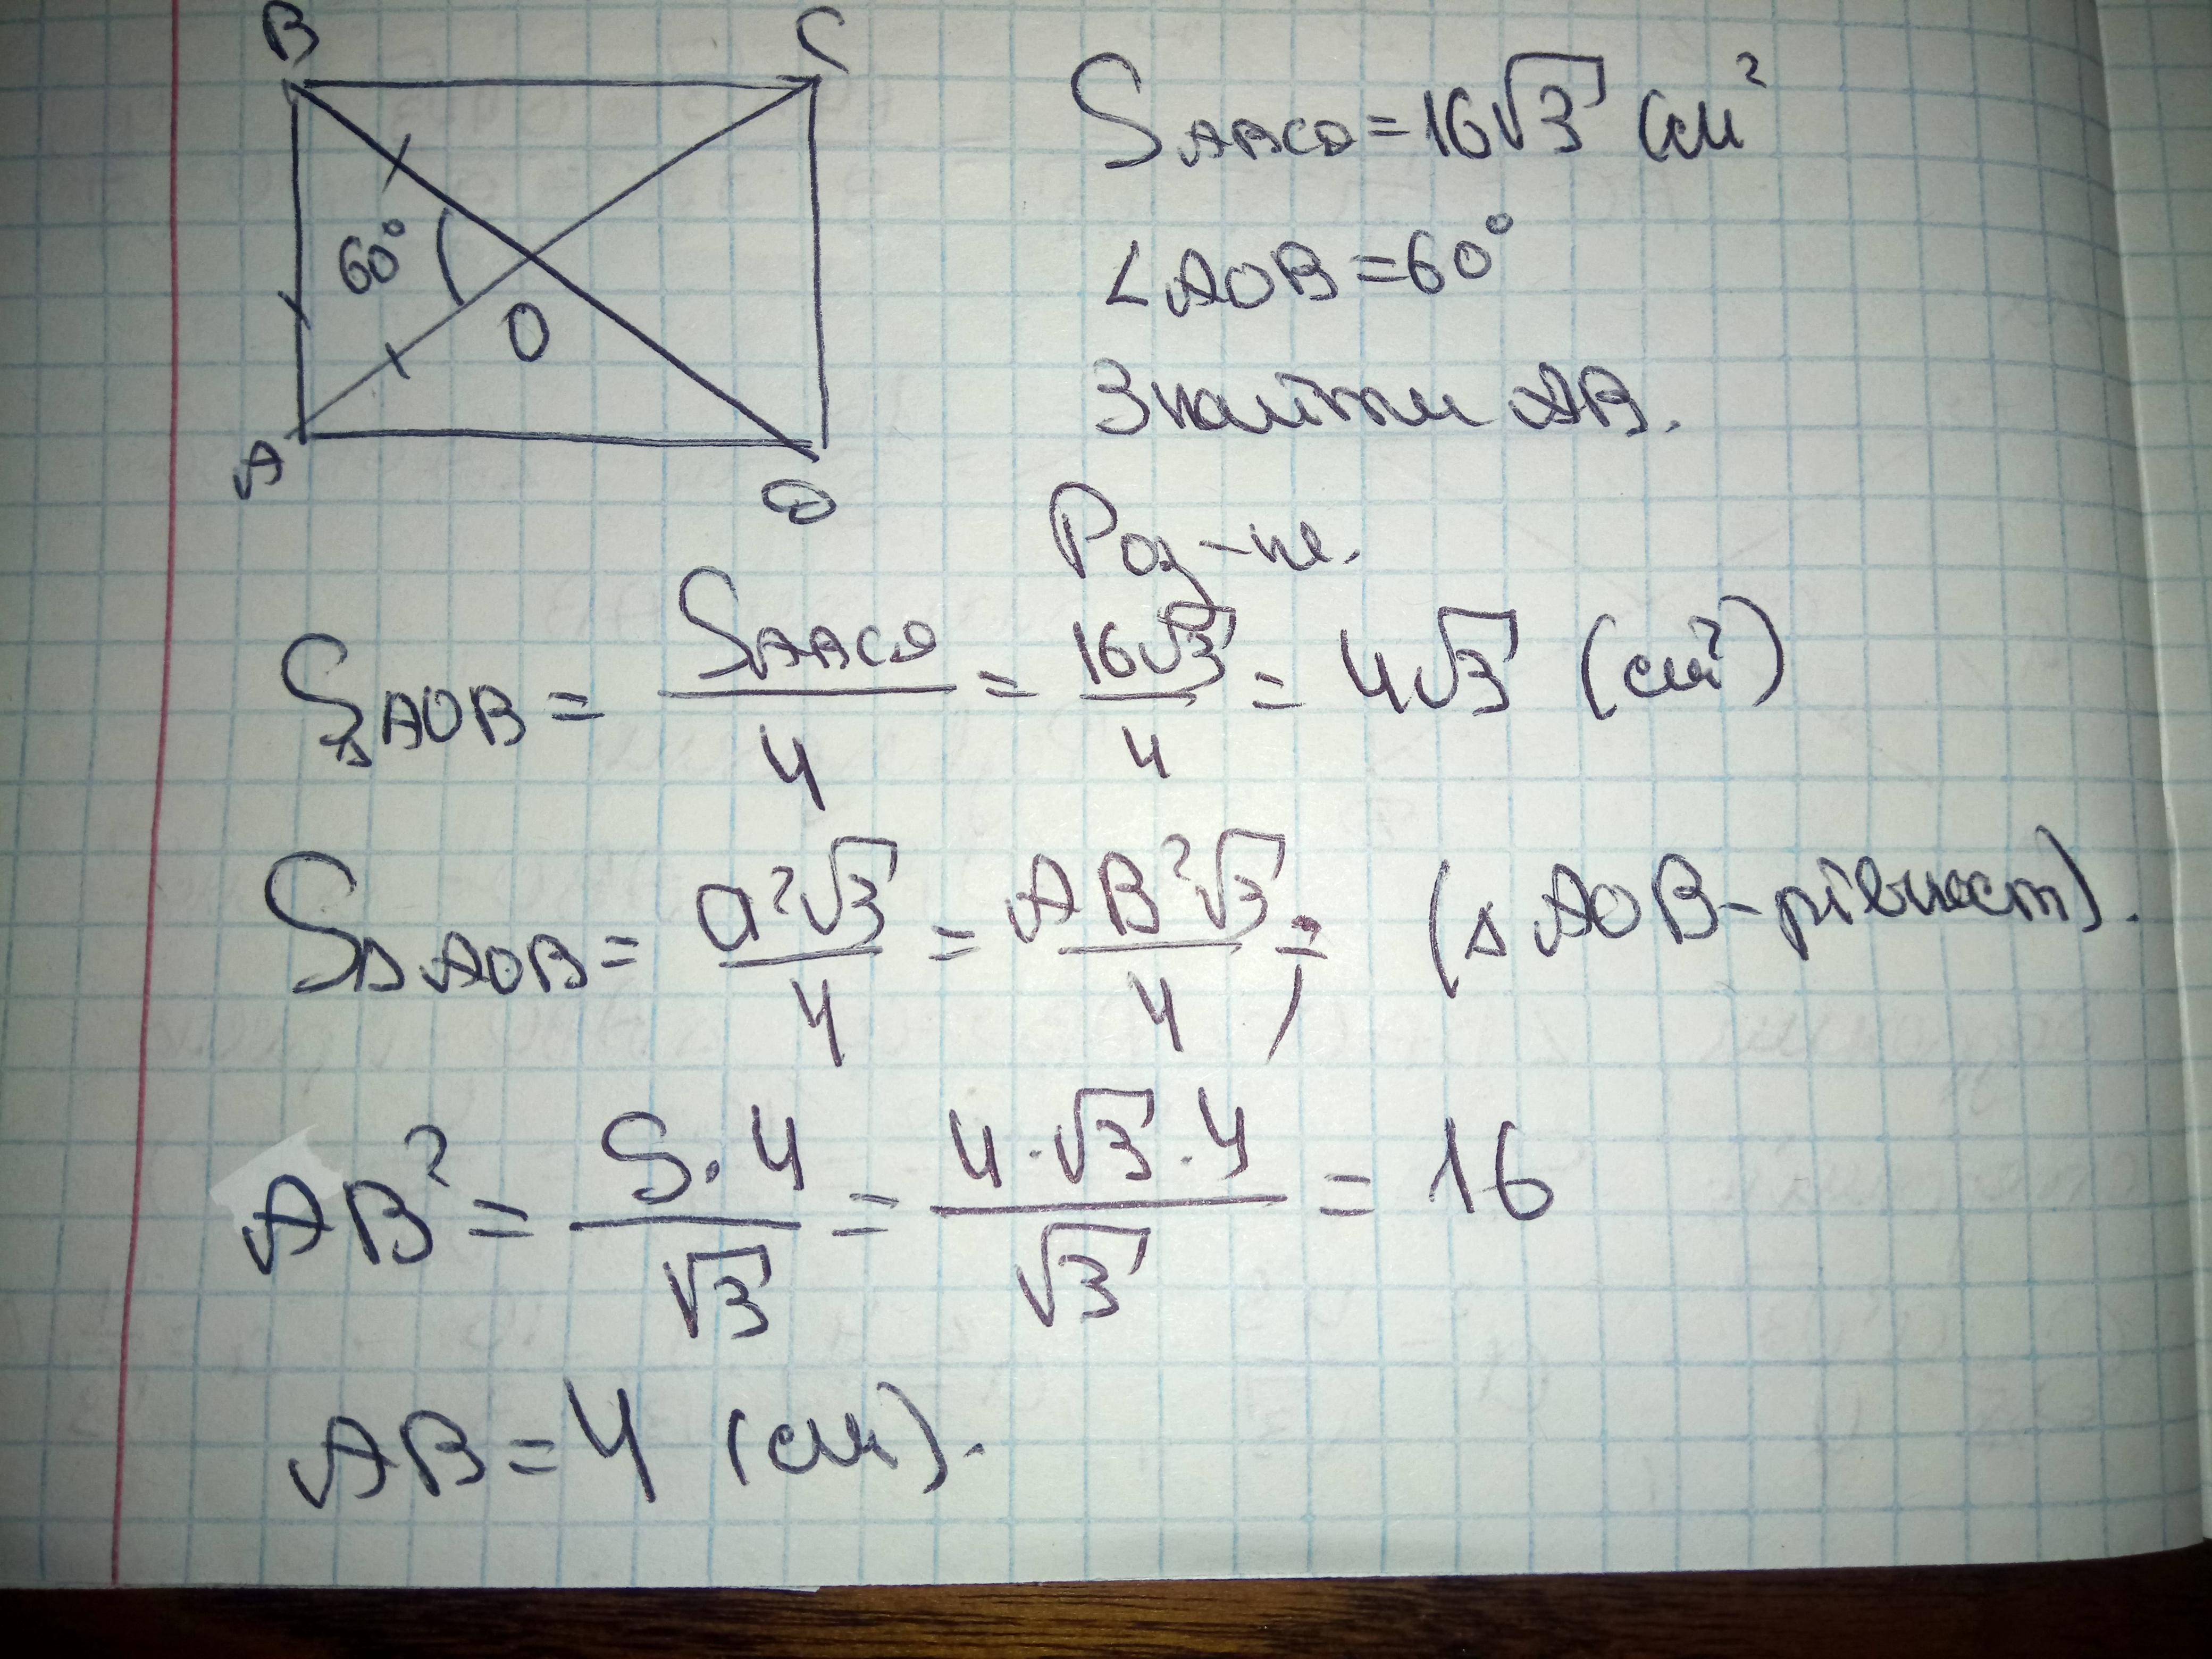 B C
60°
O
A D
S ABCD = 16√3 см²
∠AOB = 60°
Знайти AB.
Роз-не.
S△AOB = SABCD/4 = 16√3/4 = 4√3 (см²)
S△AOB = a²√3/4 = AB²√3/4; (△AOB-рівност).
AB² = S·4/√3 = 4·√3·4/√3 = 16
AB = 4 (см).